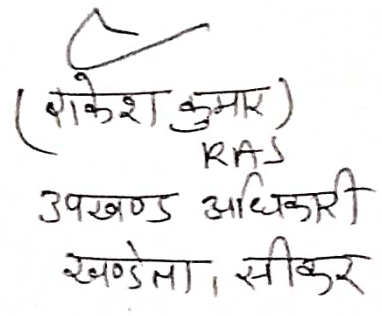 (राकेश कुमार)
RAS
उपखण्ड अधिकारी
खण्डेला, सीकर